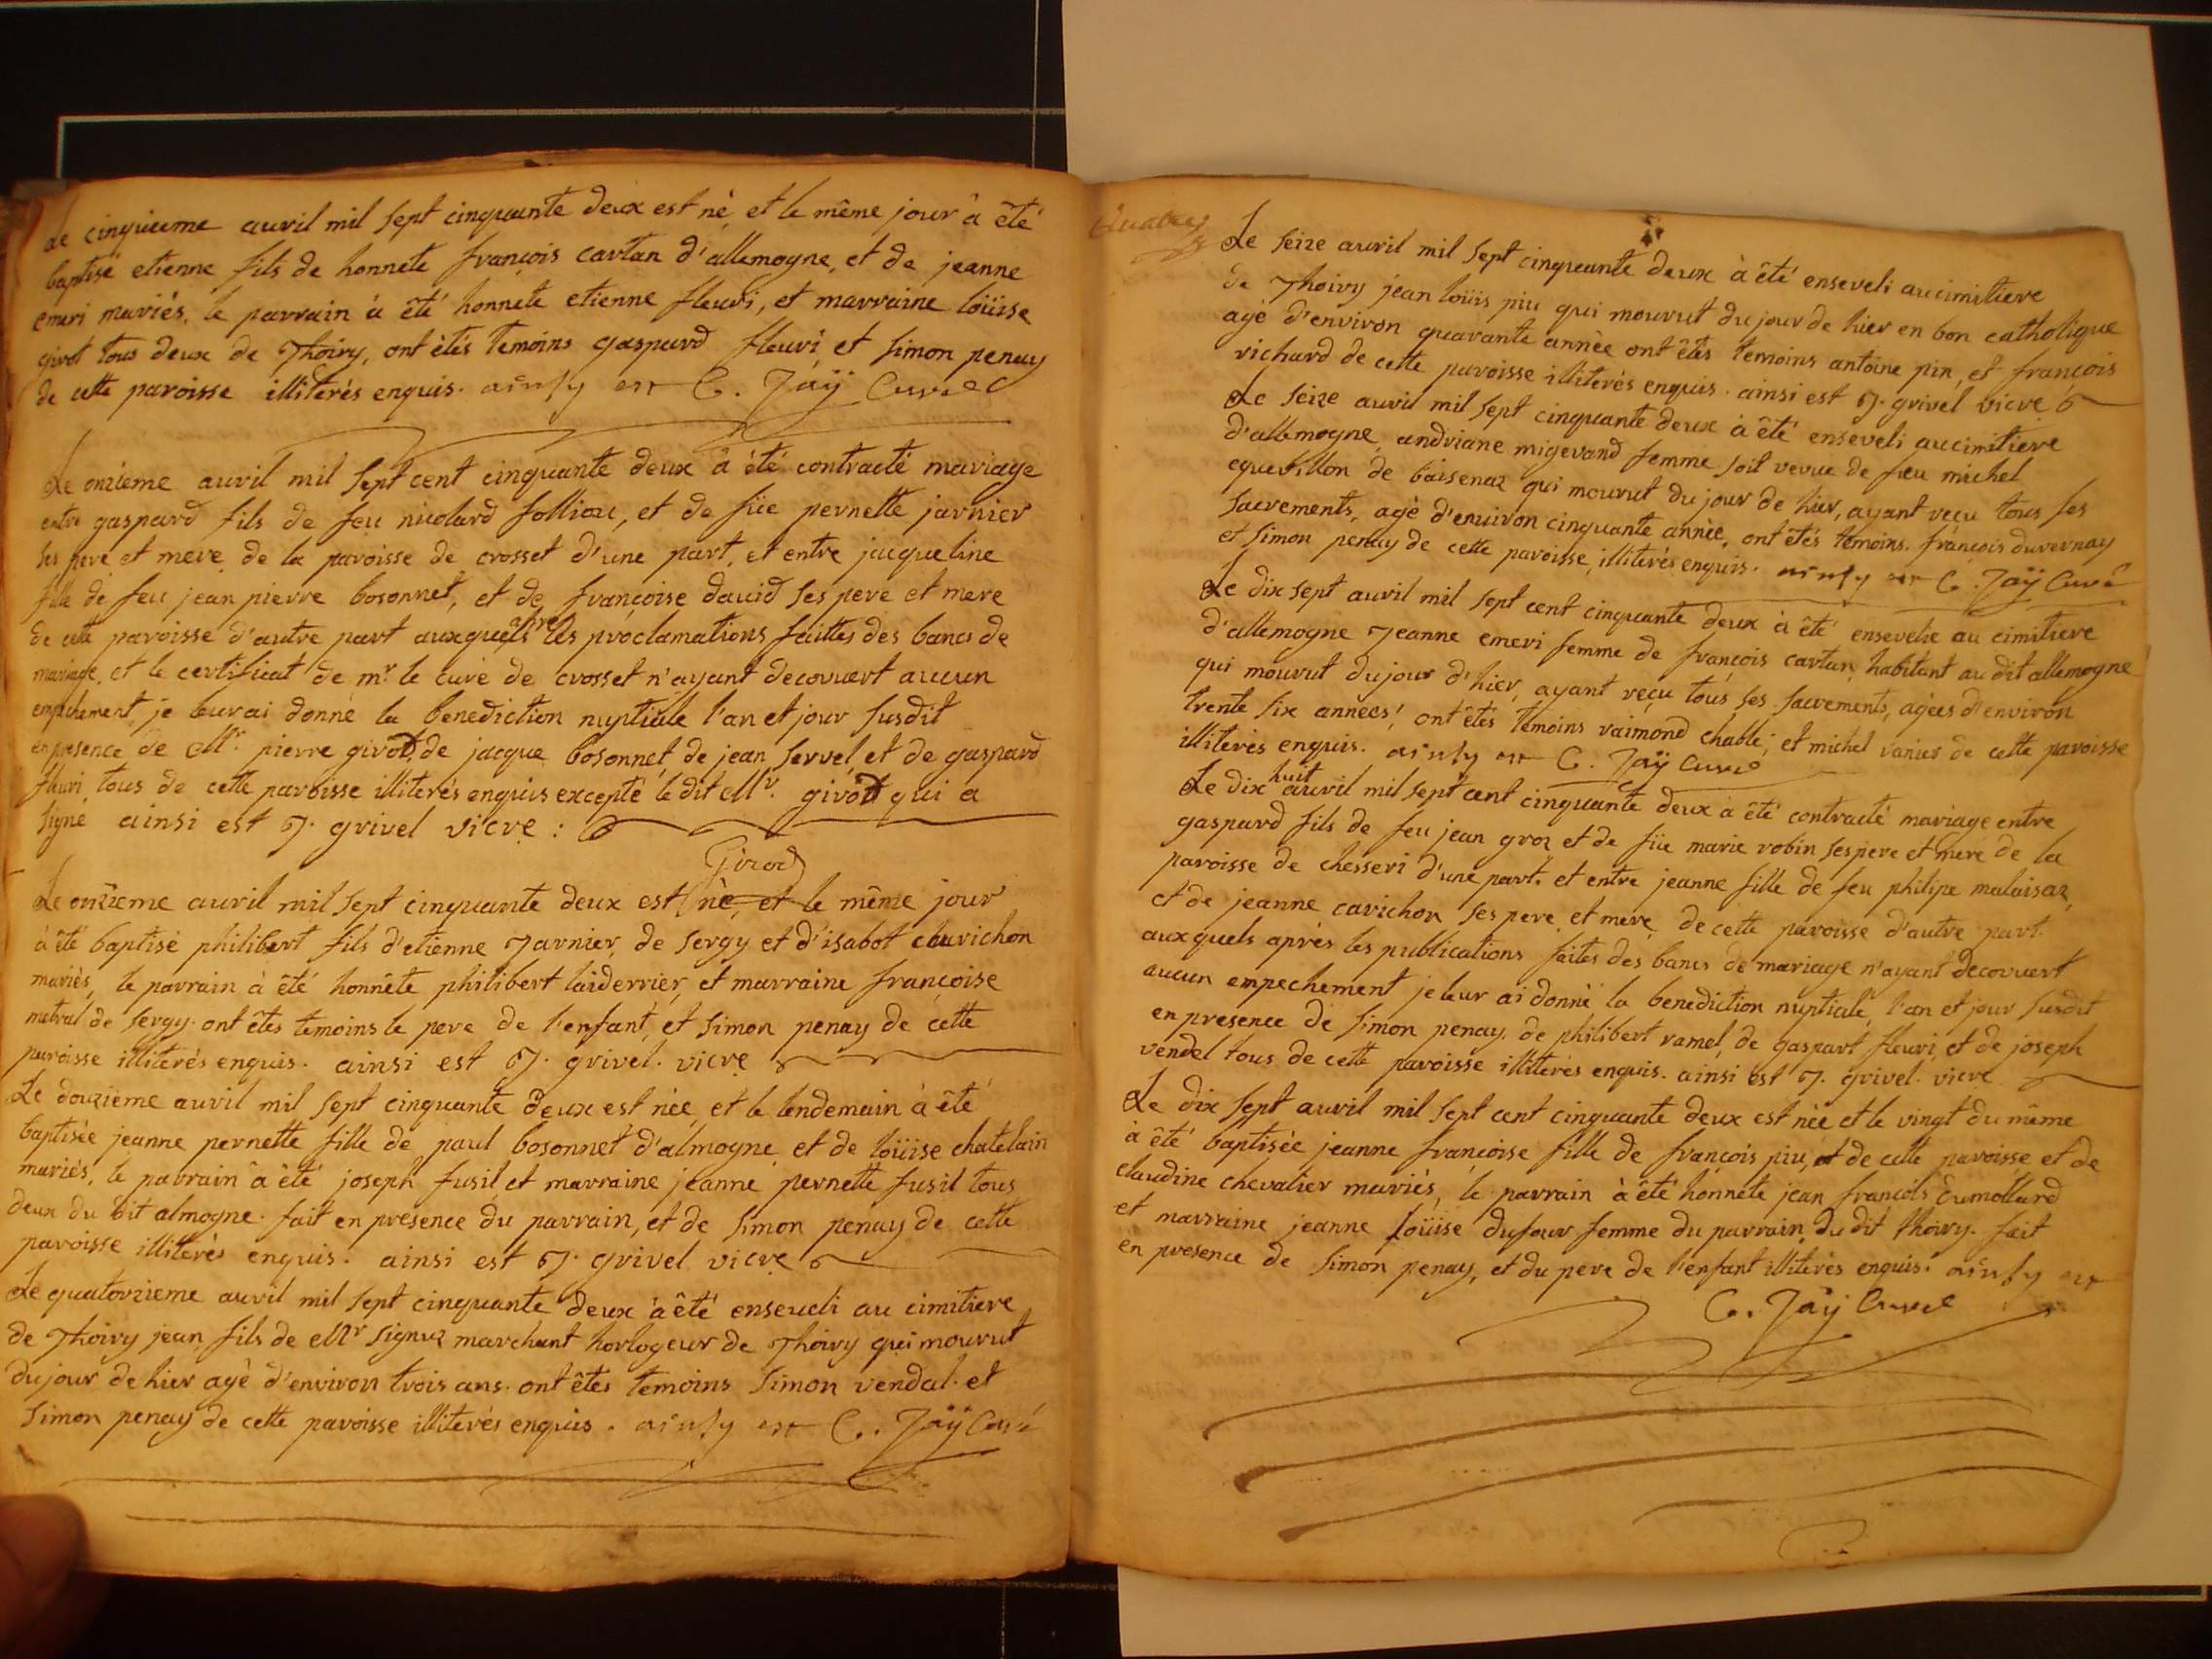 Le cinquieme auvril mil sept cinquante deux est né et le même jour à êté
baptisé etienne fils de honnete françois cartan d'allemogne, et de jeanne
emeri mariés, le parrain à êté honnete etienne fleuri, et marraine loüise
girot tous deux de Thoiry, ont étés temoins gaspard fleuri et simon penay
de cette paroisse illiterés enquis. ainsy est C. Jaÿ Curé
Le onzieme auvril mil sept cent cinquante deux à été contracté mariage
entre gaspard fils de feu nicolard folliou, et de füe pernette jarnier
ses pere et mere de la paroisse de crosset d'une part, et entre jacqueline
fille de feu jean pierre bosonnet, et de françoise dauid ses pere et mere
de cette paroisse d'autre part auxquels apres les proclamations faittes des bancs de
mariage, et le certificat de mr. le curé de crosset n'ayant decouvert aucun
empechement je leur ai donné la benediction nuptiale l'an et jour susdit
en presence de Mr. pierre girod, de jacque bosonnet, de jean servel et de gaspard
fleuri tous de cette paroisse illiterés enquis excepté le dit Mr. girod qui a
signé ainsi est J. grivel vicre :
Girod
Le onzieme auvril mil sept cinquante deux est né, et le même jour
à êté baptisé philibert fils d'etienne Jarnier de sergy et d'isabot clavrichon
mariés, le parrain à êté honnête philibert laiderrier, et marraine françoise
metral de sergy. ont êtes temoins le pere de l'enfant, et simon penay de cette
paroisse illiterés enquis. ainsi est J. grivel. vicre
Le douzieme auvril mil sept cinquante deux est née, et le lendemain à êté
baptisée jeanne pernette fille de paul bosonnet d'almogne et de loüise chatelain
mariés, le parrain à êté joseph fusil et marraine jeanne pernette fusil tous
deux du dit almogne. fait en presence du parrain, et de simon penay de cette
paroisse illiterés enquis. ainsi est J. grivel vicre
Le quatorzieme auvril mil sept cinquante deux à êté enseueli au cimitiere
de Thoiry jean fils de Mr marchant horlogeur de Thoiry qui mourut
du jour de hier agé d'environ trois ans. ont êtés temoins simon vendal. et
simon penay de cette paroisse illiterés enquis. ainsy est C. Jaÿ Curé
Le seize auvril mil sept cinquante deux à êté enseveli au cimitiere
de Thoiry jean loüis piu qui mourut du jour de hier en bon catholique
agé d'environ quarante année ont êtés temoins antoine pin, et françois
richard de cette paroisse illiterés enquis. ainsi est J. grivel vicre
Le seize auvril mil sept cinquante deux à êté enseveli au cimitiere
d'allemogne andriane migevand femme soit vevue de feu michel
de baisenaz qui mourut du jour de hier, ayant reçu tous ses
sacrements, agé d'enuiron cinquante année, ont étés témoins. françois duvernay
et simon penay de cette paroisse, illiterés enquis. ainsy est C. Jaÿ Curé
Le dix sept auvril mil sept cent cinquante deux à êté ensevelie au cimitiere
d'allemogne Jeanne emeri femme de françois cartan, habitant au dit allemogne
qui mourut du jour d'hier, ayant reçu tous ses sacrements, agées d'environ
trente six années, ont êtés temoins raimond chable, et michel vanier de cette paroisse
illiterés enquis. ainsy est C. Jaÿ Curé
Le dix huit auvril mil sept cent cinquante deux à êté contracté mariage entre
gaspard fils de feu jean groz et de füe marie robin ses pere et mere de la
paroisse de chesseri d'une part, et entre jeanne fille de feu philipe malaisaz,
et de jeanne cavichon ses pere et mere de cette paroisse d'autre part.
auxquels après les publications faites des bancs de mariage n'ayant decouvert
aucun empechement je leur ai donné la benediction nuptiale, l'an et jour susdit
en presence de simon penay. de philibert ramel, de gaspart fleuri, et de joseph
vendel tous de cette paroisse illiterés enquis. ainsi est J. grivel. vicre
Le dix sept auvril mil sept cent cinquante deux est née et le vingt du même
à êté baptisée jeanne francoise fille de françois piu, et de cette paroisse, et de
claudine chevalier mariés, le parrain à êté honnête jean françois dumollard
et marraine jeanne loüise dufour femme du parrain, du dit thoiry. fait
en presence de simon penay, et du pere de l'enfant illiterés enquis. ainsy est
C. Jaÿ Curé